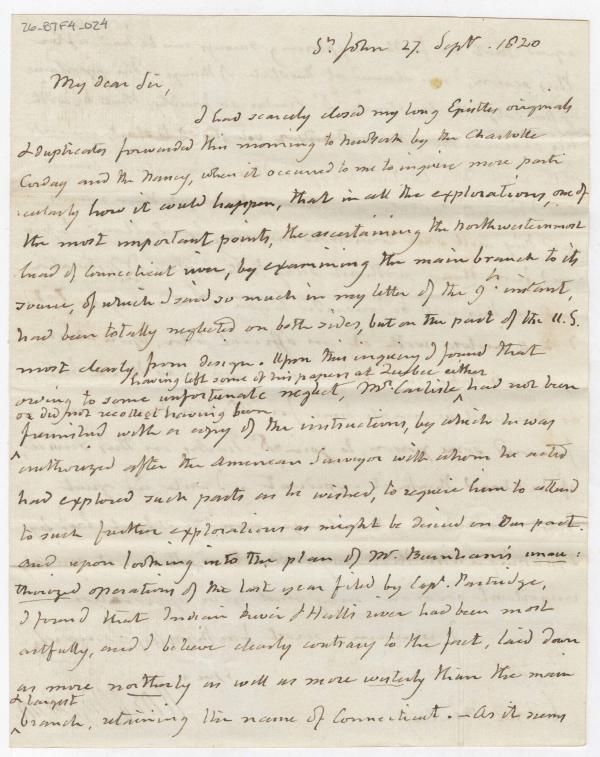 26-B7F4-024
St. John 27. Septr. 1820
My dear Sir,
I had scarcely closed my long Epistles originals
& duplicates forwarded this morning to NewYork by the Charlotte
Corday and the Nancy, when it occurred to me to inquire more parti
cularly how it could happen, that in all the explorations, one of
the most important points, the ascertaining the Northwesternmost
head of Connecticut river, by examining the main branch to its
source, of which I said so much in my letter of the 9th. instant,
had been totally neglected on both sides, but on the part of the U.S.
most clearly, from design. Upon this inquiry I found that
having left some of his papers at Quebec either
owing to some unfortunate neglect, Mr. Carlisle had not been
or did not recollect having been
furnished with a copy of the instructions, by which he was
authorized after the American Surveyor with whom he acted
had explored such parts as he wished, to require him to attend
to such further explorations as might be desired on our part.
And upon looking into the plan of Mr. Burnham's unau:
thorized operations of the last year filed by Capt. Partridge,
I found that Indian River & Halls river had been most
artfully, and I believe clearly contrary to the fact, laid down
as more northerly as well as more westerly than the main
& largest
branch, retaining the name of Connecticut. — As it seems